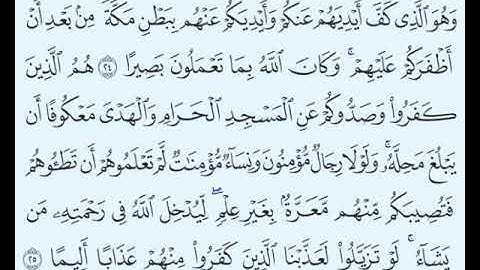 وَهُوَ ٱلَّذِى كَفَّ أَيْدِيَهُمْ عَنكُمْ وَأَيْدِيَكُمْ عَنْهُم بِبَطْنِ مَكَّةَ مِنۢ بَعْدِ أَنْ
أَظْفَرَكُمْ عَلَيْهِمْ ۚ وَكَانَ ٱللَّهُ بِمَا تَعْمَلُونَ بَصِيرًا ٢٤ هُمُ ٱلَّذِينَ
كَفَرُوا۟ وَصَدُّوكُمْ عَنِ ٱلْمَسْجِدِ ٱلْحَرَامِ وَٱلْهَدْىَ مَعْكُوفًا أَن
يَبْلُغَ مَحِلَّهُۥ ۚ وَلَوْلَا رِجَالٌ مُّؤْمِنُونَ وَنِسَآءٌ مُّؤْمِنَـٰتٌ لَّمْ تَعْلَمُوهُمْ أَن تَطَـُٔوهُمْ
فَتُصِيبَكُم مِّنْهُم مَّعَرَّةٌۢ بِغَيْرِ عِلْمٍ ۖ لِّيُدْخِلَ ٱللَّهُ فِى رَحْمَتِهِۦ مَن
يَشَآءُ ۚ لَوْ تَزَيَّلُوا۟ لَعَذَّبْنَا ٱلَّذِينَ كَفَرُوا۟ مِنْهُمْ عَذَابًا أَلِيمًا ٢٥